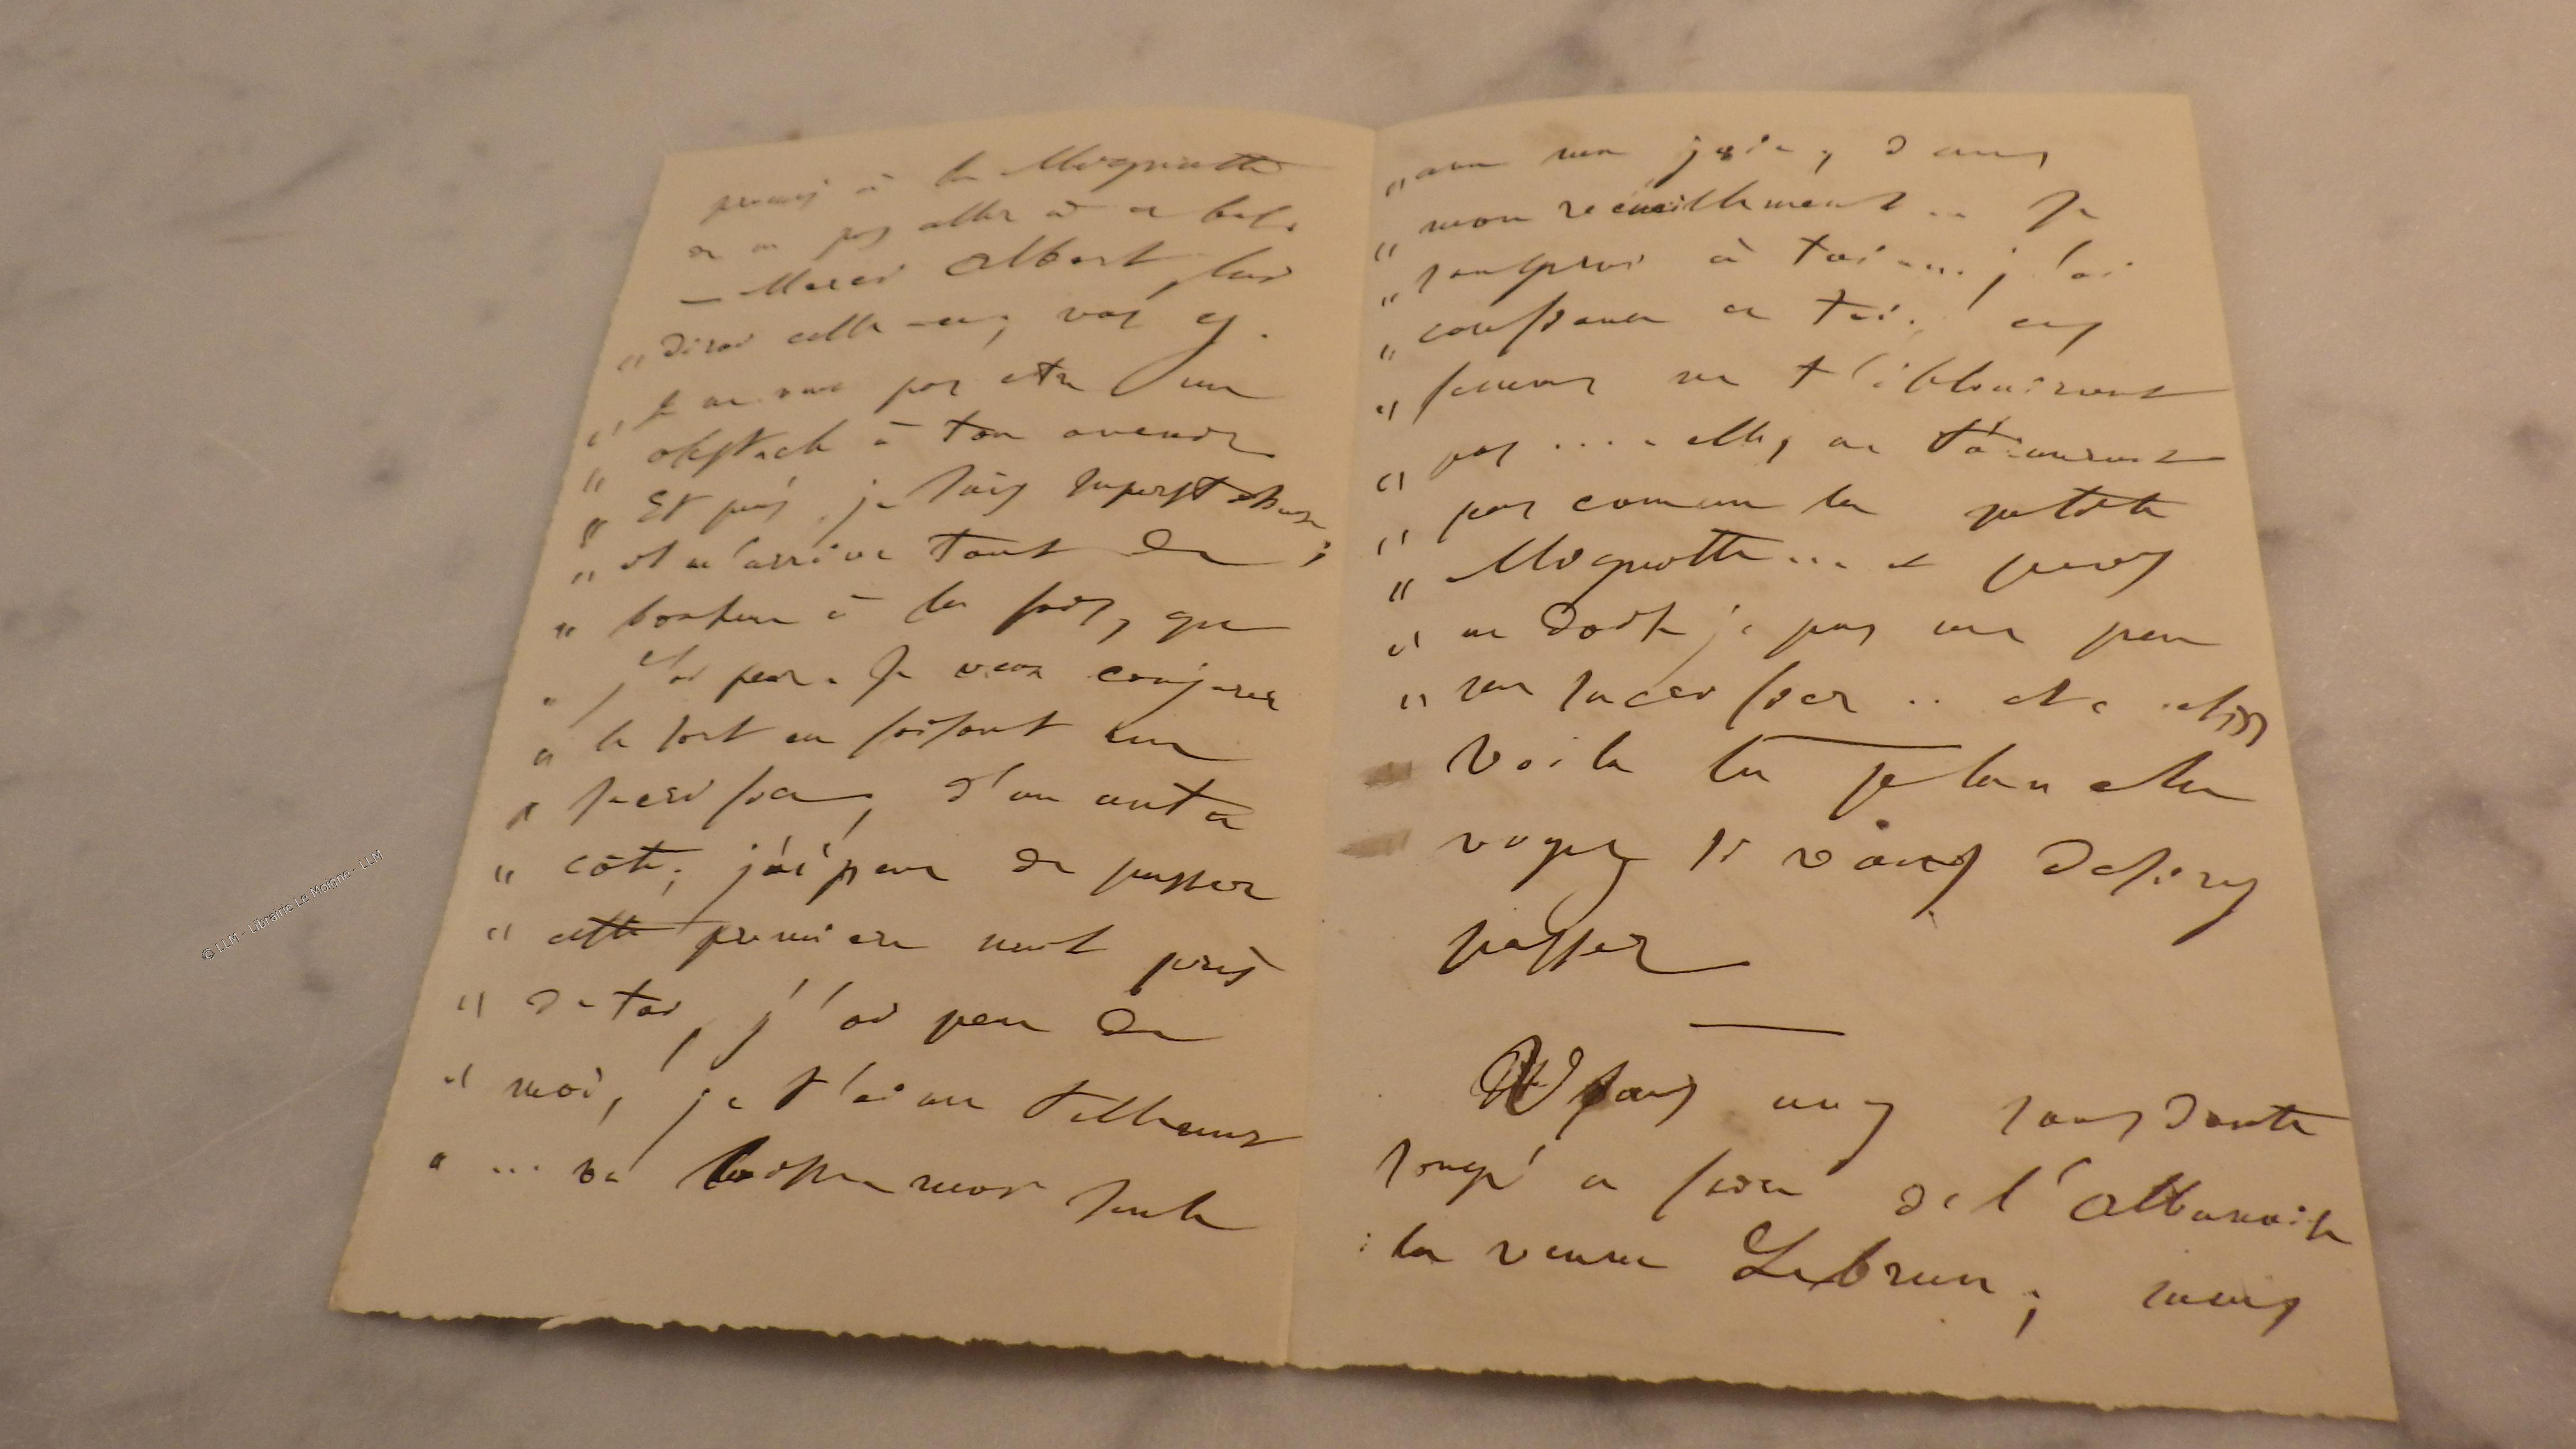 promis à la Moquette
de ne pas aller à ce bal.
— Merci Albert, lui
" dirai celle-ci, vas y.
" je ne veux pas etre un
" obstacle à ton avenir
" Et puis je suis superstitieuse ;
" il m'arrive tant de
" bonheur à la fois, que
" j'ai peur. Je veux conjurer
" le sort en faisant un
" sacrifice, d'un autre
" coté, j'ai peur de passer
" cette premiere nuit près
" de toi, j'ai peur de
" moi, je t'aime tellement
" ... va laisse moi seule
" avec ma joie, dans
" mon recueillement .. Je
" songerai à toi .... j'ai
" confiance en toi. ces
" femmes ne t'éblouiront
" pas .... elles ne t'aimeront
" pas comme la petite
" Moquette ... et puis
" ne dois je pas me
" sacrifier .. etc
voila la planche
voyez si vous desirez
passer
Vous avez sans doute
songé a faire de l'Albanaise
la veuve Lebrun ; mais
© LLM - Librairie Le Moigne - LLM